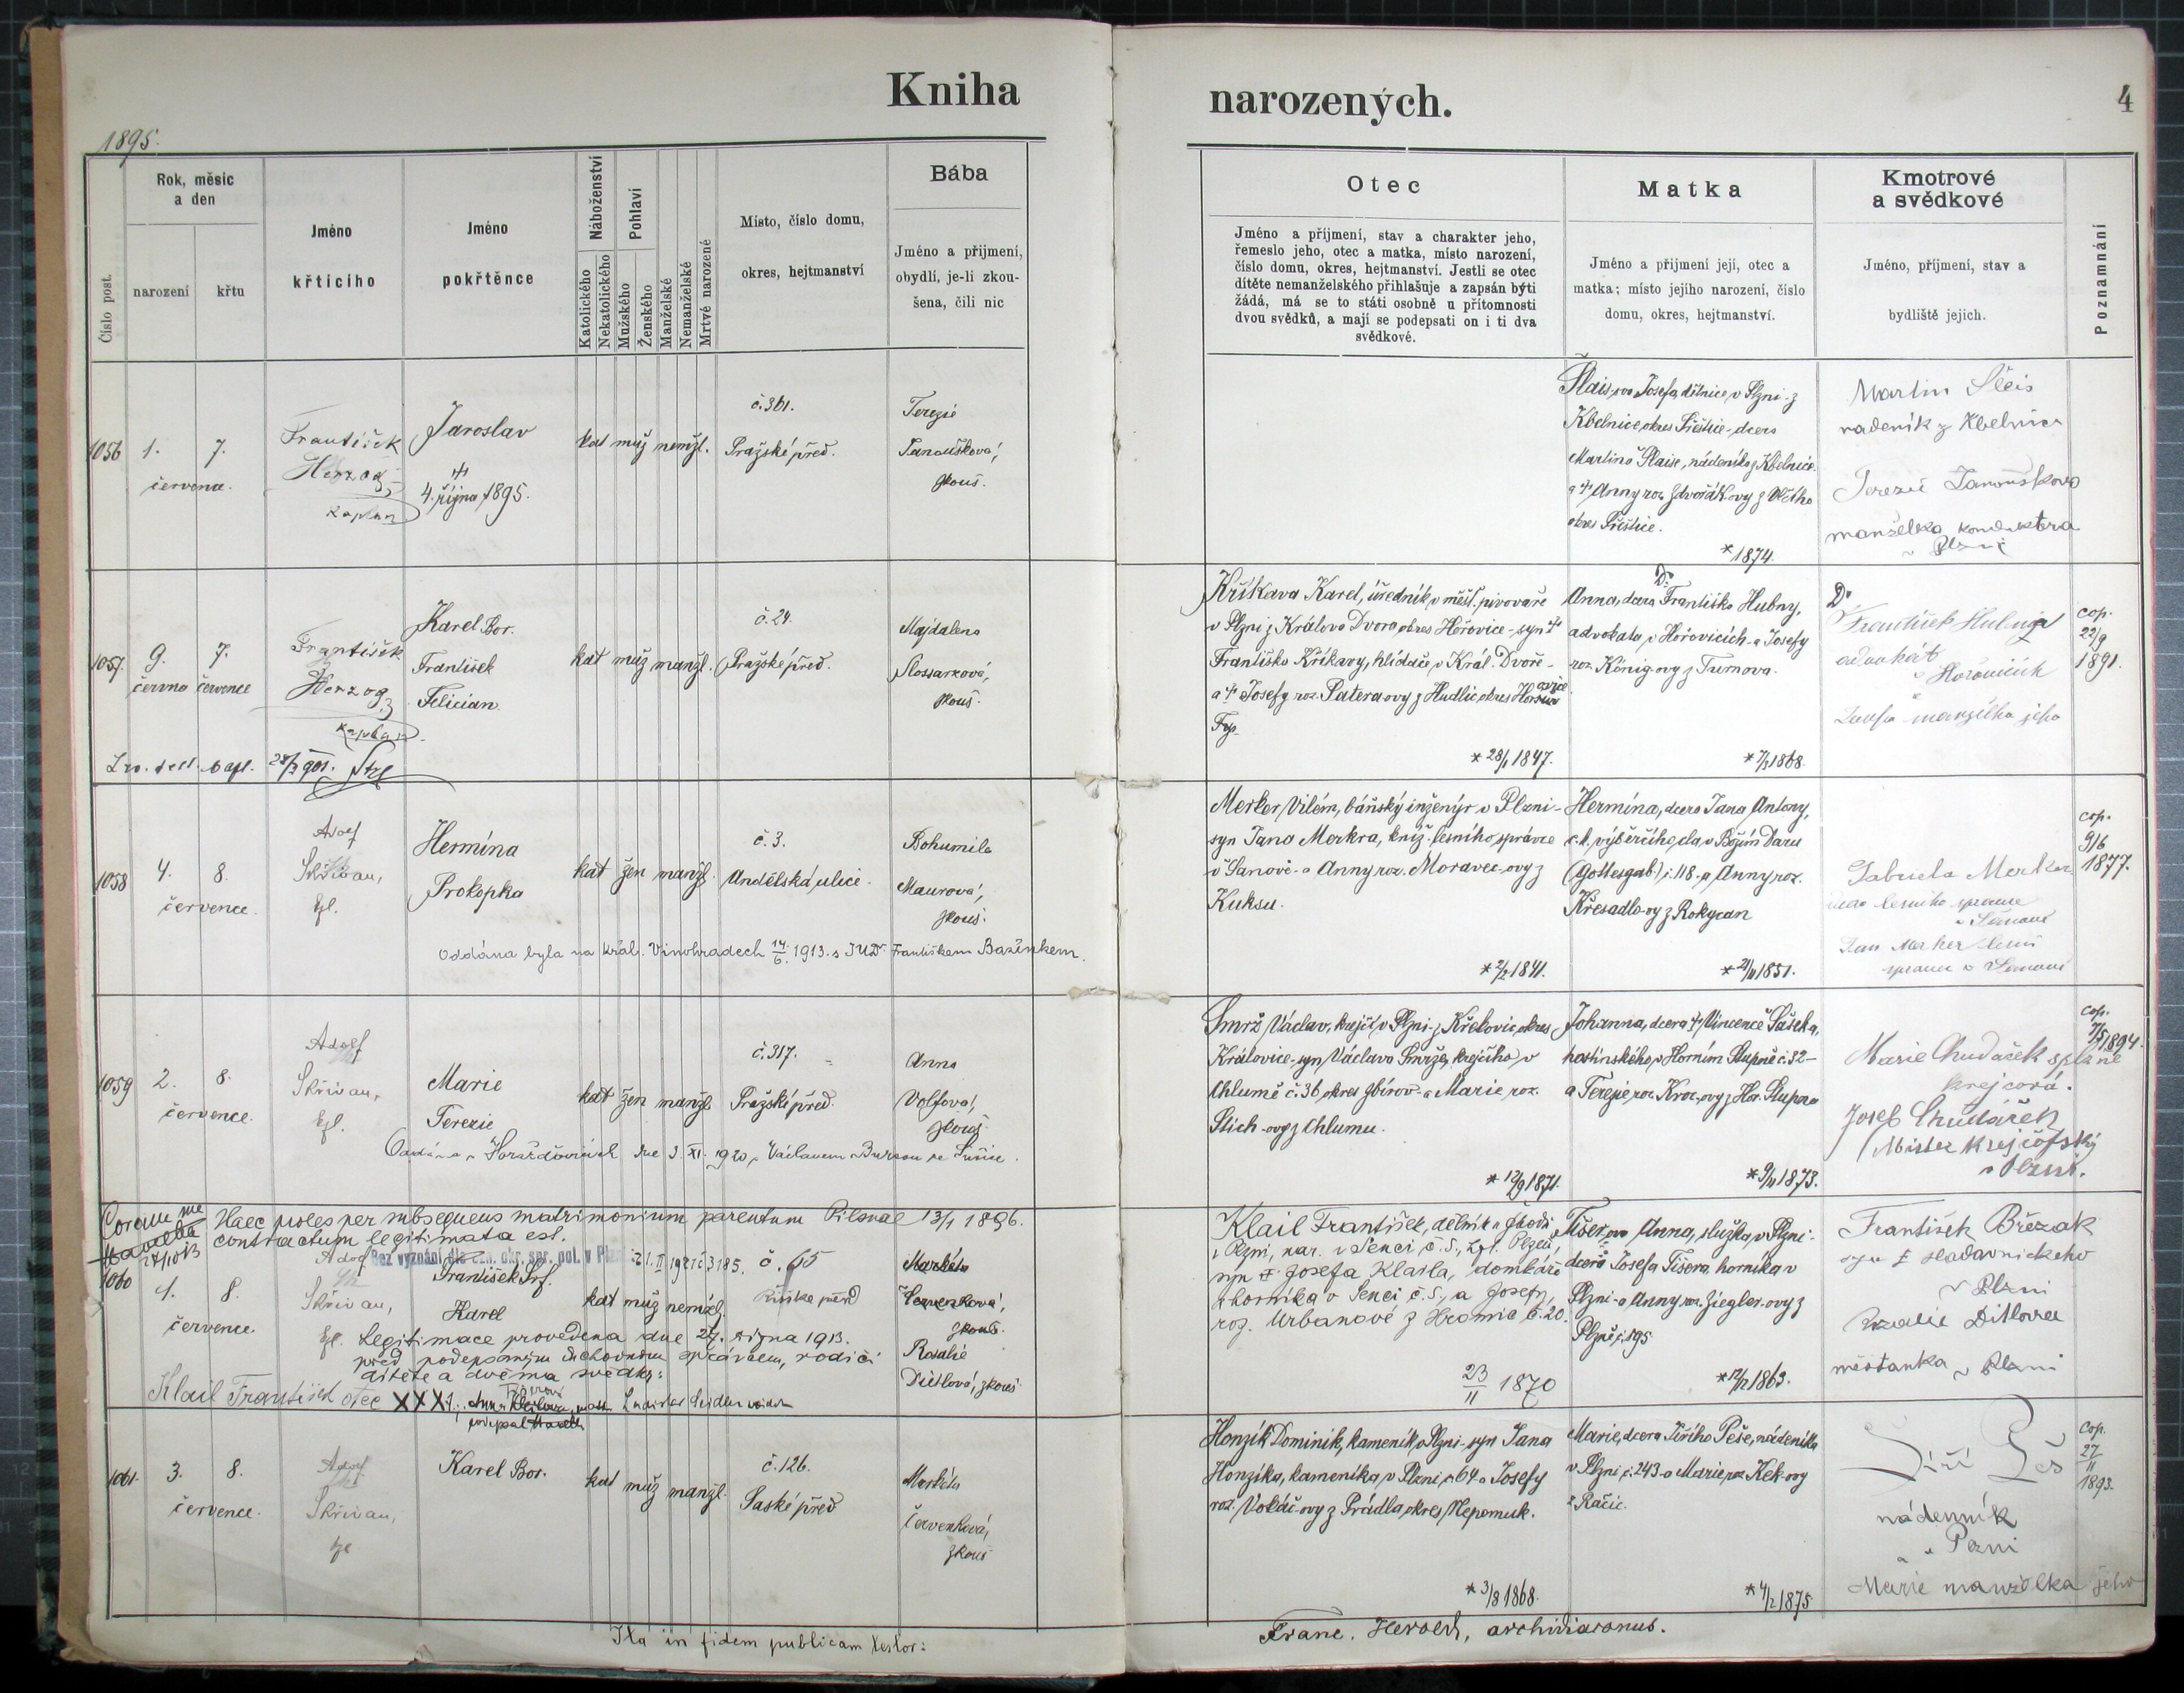 Kniha
narozených.
4
1895.
Číslo post.
Rok, měsíc
a den
narození
křtu
Jméno
křticího
Jméno
pokřtěnce
Náboženství
Katolického
Nekatolického
Pohlaví
Mužského
Ženského
Manželské
Nemanželské
Mrtvé narozené
Místo, číslo domu,
okres, hejtmanství
Bába
Jméno a příjmení,
obydlí, je-li zkou-
šena, čili nic
Otec
Jméno a příjmení, stav a charakter jeho,
řemeslo jeho, otec a matka, místo narození,
číslo domu, okres, hejtmanství. Jestli se otec
dítěte nemanželského přihlašuje a zapsán býti
žádá, má se to státi osobně u přítomnosti
dvou svědků, a mají se podepsati on i ti dva
svědkové.
Matka
Jméno a příjmení její, otec a
matka; místo jejího narození, číslo
domu, okres, hejtmanství.
Kmotrové
a svědkové
Jméno, příjmení, stav a
bydliště jejich.
Poznamnání
1056
1.
7.
července.
František
Herzog,
kaplan
Jaroslav
†
4. října 1895.
kat muž nemžl.
č. 361.
Pražské před.
Terezie
Janoušková,
zkouš.
Josefa, dělnice v Plzni z
Kbelnice, okres Přeštice - dcera
Martina, nádeníka z Kbelnice
a † Anny roz.
okres Přeštice.
* 1874.
Martin
nadeník z Kbelnice
Terezie Janoušková
manželka konduktera
v Plzni
1057.
9.
7.
června července
František
Herzog,
kaplan
Karel Bor.
František
Felician.
kat muž manžl.
č. 24.
Pražské před.
Majdalena
zkouš.
28/3 901.
Křikava Karel, úředník v měšť. pivovaře
v Plzni z Králova Dvora okres Hořovice - syn †
Františka Křikavy, hlídače v Král. Dvoře -
a † Josefy roz. Patera-ovy z Hudlic okres
* 28/1 1847.
Anna, dcera Dr. Františka Hubny,
advokáta v Hořovicích a Josefy
roz. König-ovy z Turnova.
* 7/3 1868.
Dr.
František Hubny
advokát
v Hořovicích
Josefa manželka jeho
cop.
22/9
1891.
1058
4.
8.
července.
Adolf
Skřivan,
kpl.
Hermína
Prokopka
kat žen manžl.
č. 3.
Andělská ulice.
Bohumila
Maurová,
zkouš.
Oddána byla na Král. Vinohradech 14/6. 1913. s JUDr. Františkem Bažínkem.
Merker Vilém, báňský inženýr v Plzni -
syn Jana Merkra, kníž. lesního správce
v Šanově a Anny roz. Moravec-ovy z
Kuksu.
* 2/2 1841.
Hermína, dcera Jana Antony,
c. k. výběrčího cla v Božím Daru
(Gottesgab) č. 118. a Anny roz.
Křesadlo-vy z Rokycan
* 21/11 1851.
Gabriela Merker
dcera lesního správce
Jan Merker lesní
správce v
cop.
9/6
1877.
1059
2.
8.
července.
Adolf
Skřivan,
kpl.
Marie
Terezie
kat žen manžl.
č. 317.
Pražské před.
Anna
Volfová,
zkouš.
Oddána v Horažďovicích dne 3. XI. 1920 s Václavem
Smrž Václav, krejčí v Plzni - z Křekovic okres
Kralovice - syn Václava Smrže, krejčího v
Chlumě č. 36, okres Zbirov - a Marie roz.
z Chlumu.
* 12/9 1871.
Johanna, dcera † Vincence Šaška,
hostinského v Horním Stupně č. 32 -
a Terezie roz. Kroc-ovy z Hor. Stupna
* 9/11 1873.
Marie Chudáček z Plzně
krejcová.
Josef Chudáček
Mistr krejčofský
v Plzni.
cop.
7/5 1894.
Coram me
27/10 13
Haec proles per subsequens matrimonium parentum Pilsnae 13/1 1896.
contractum legitimata est.
Bez vyznání dle ozn. okr. spr. pol. v Plzni 21. II 1921 č. 3185.
1060
4.
8.
července.
Adolf
Skřivan,
kpl.
František Srf.
Karel
kat muž nemžel.
č. 65
Říšské před
Markéta
Červenková,
zkouš.
Rosalie
Dietlová, zkouš.
Legitimace provedena dne 27. října 1913.
před podepsaným duchovním správcem, rodiči
dítěte a dvěma svědky:
Klail František otec XXX
Ladislav Seidler svědek
Klail František, dělník v Škodů.
v Plzni, nar. v Senci č. 5., hejt. Plzeň,
syn † Josefa Klaila, domkáře
a horníka v Senci č. 5., a Josefy,
roz. Urbanové z Hromic č. 20.
23/II 1870
Tišer-ova Anna, služka v Plzni -
dcera Josefa Tišera, horníka v
Plzni a Anny roz. Ziegler-ovy z
Plzně č. 195
* 12/2 1863.
František Březák
syn † sladovnického
v Plzni
Rozalie Ditlova
měšťanka v Plzni
1061.
3.
8.
července.
Adolf
Skřivan,
kpl
Karel Bor.
kat muž manžl.
č. 126.
Saské před
Markéta
Červenková,
zkouš
Honzík Dominik, kameník v Plzni - syn Jana
Honzíka, kameníka v Plzni č. 64 a Josefy
roz. Vokáč-ovy z Prádla, okres Nepomuk.
* 3/8 1868.
Marie, dcera Jiřího Peše, nádeníka
v Plzni č. 243 a Marie roz. Kek-ovy
z Račic.
* 4/2 1875
Jiří Peš
nádenník
v Plzni
Marie manželka jeho
cop.
27/II
1893.
Ita in fidem publicam testor:
Franc. Herold, archidiaconus.